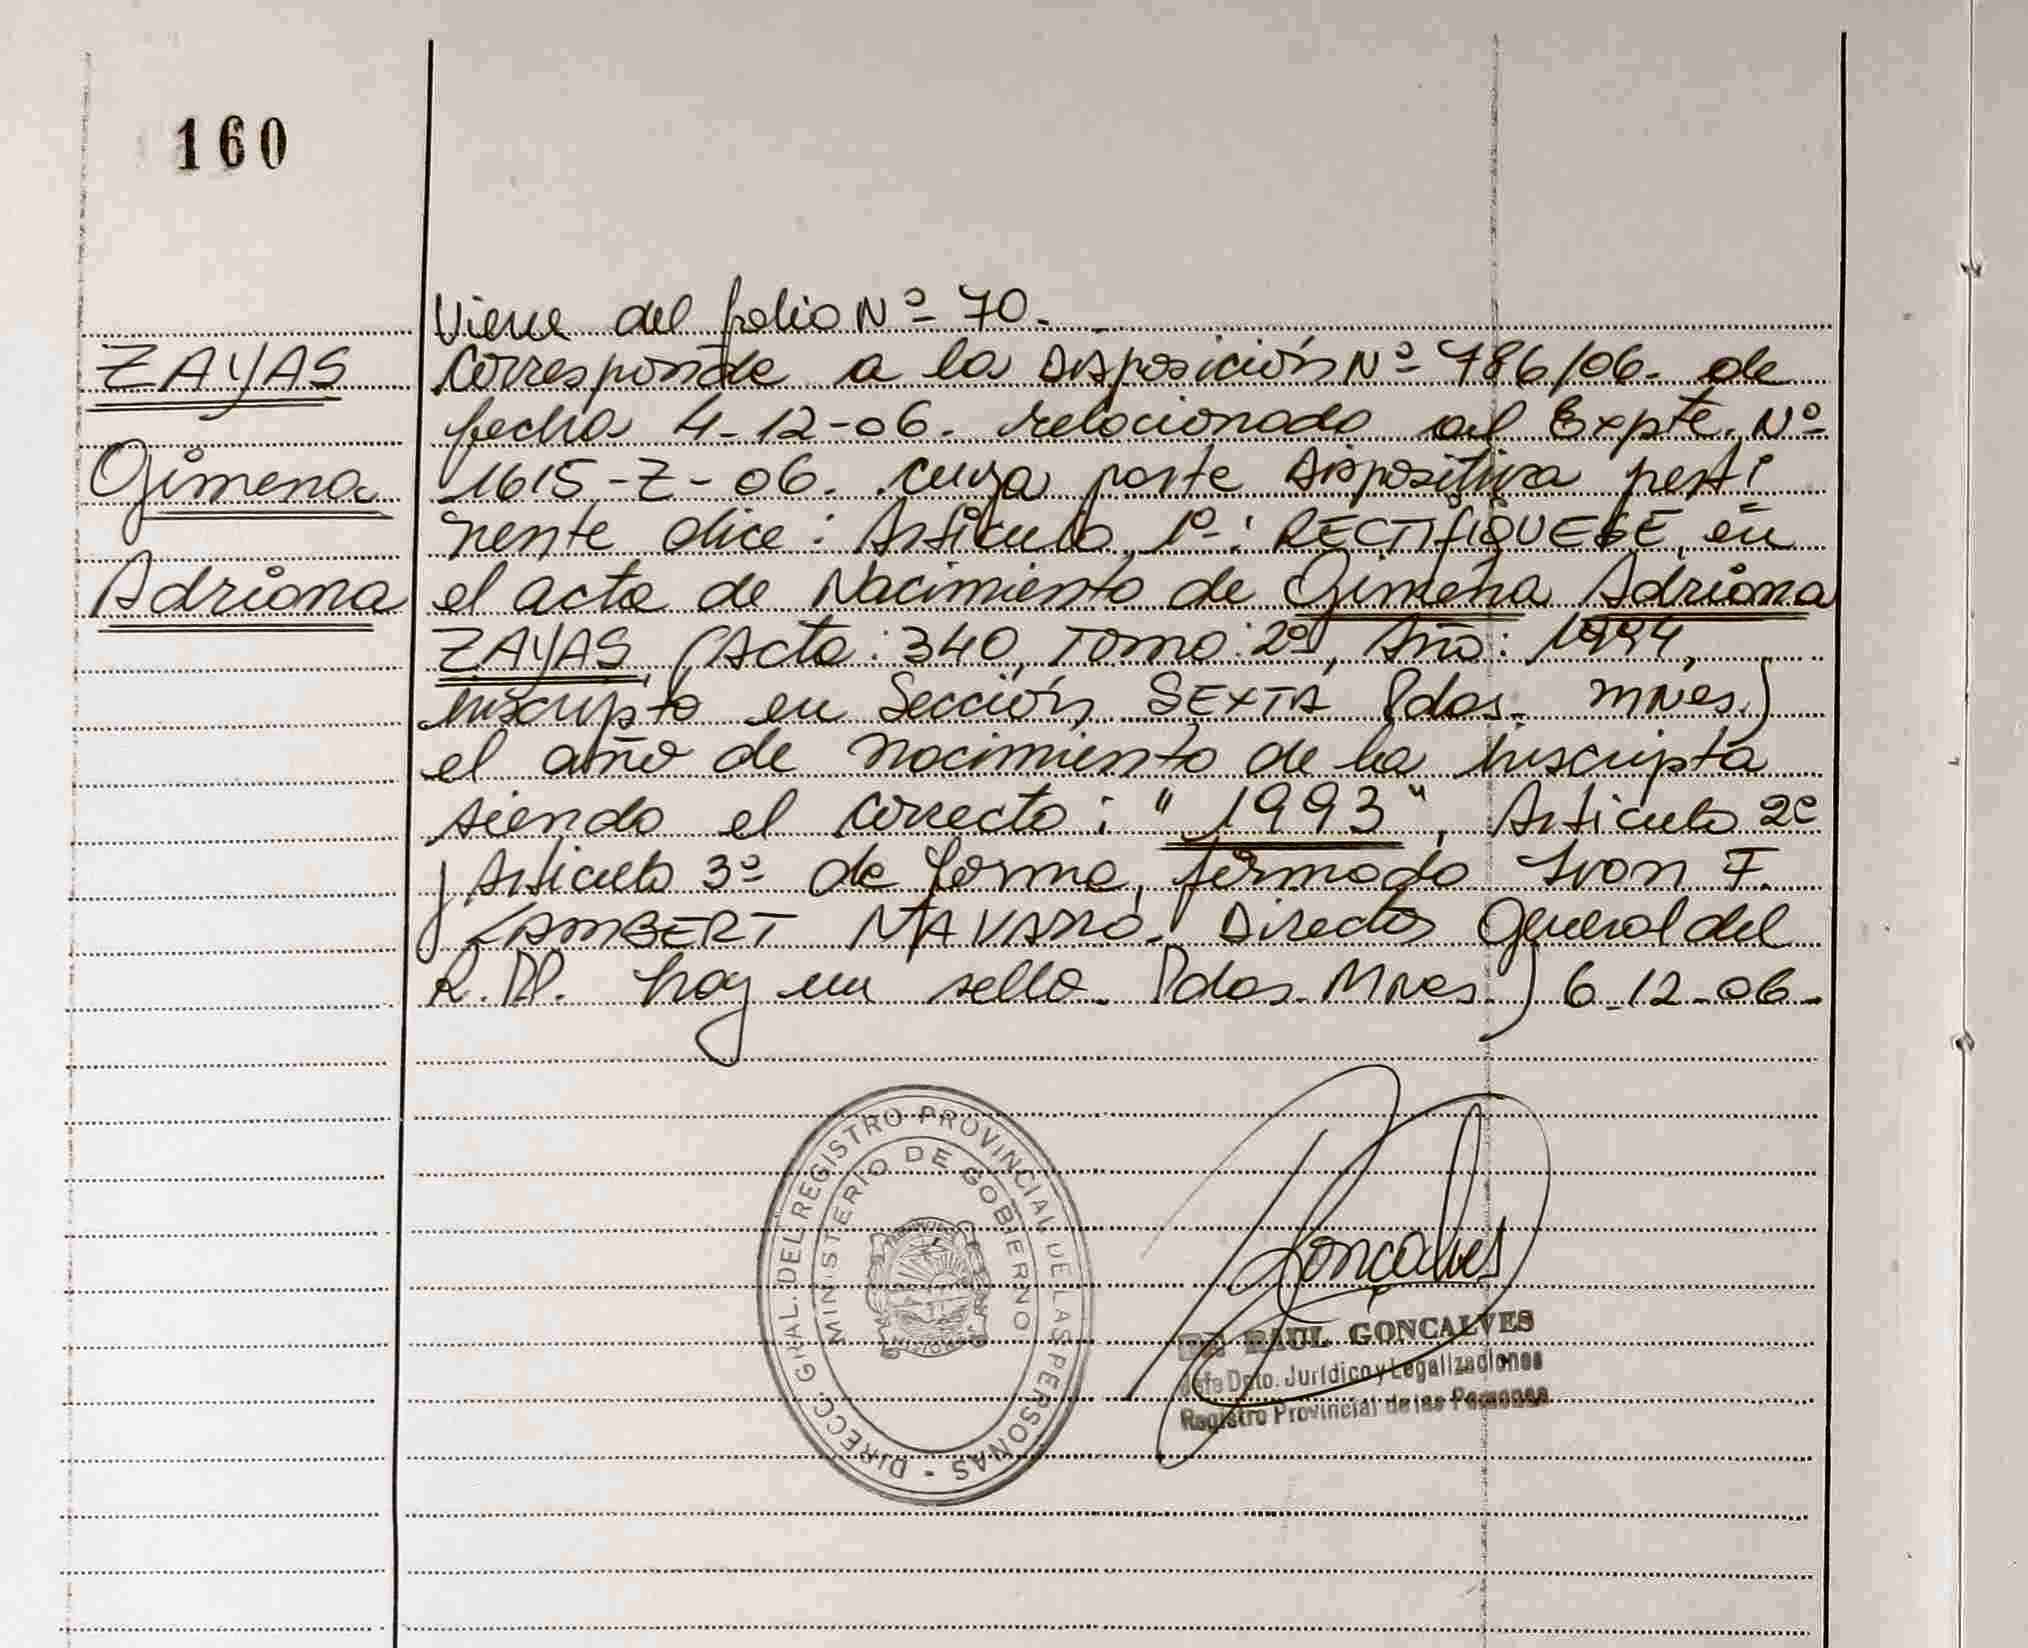 160
Viene del folio Nº 70.
ZAYAS
Gimena
Adriana
Corresponde a la Disposición Nº 786/06. de
fecha 4-12-06. relacionado al Expte. Nº
1615-Z-06. cuya parte dispositiva perti
nente dice: Artículo 1º: RECTIFIQUESE, en
el acta de Nacimiento de Gimena Adriana
ZAYAS (Acta: 340, Tomo: 2º, Año: 1994,
inscripta en Sección SEXTA Pdas. Mnes.)
el año de nacimiento de la inscripta
siendo el correcto: "1993", Artículo 2º
y Artículo 3º de forma, firmado Ivon F.
LAMBERT NAVARRO. Director General del
R.P.P. hay un sello. Pdas. Mnes.) 6-12-06.
DIRECC. GRAL. DEL REGISTRO PROVINCIAL DE LAS PERSONAS -
MINISTERIO DE GOBIERNO
Goncalves
RAUL GONCALVES
Jefe Dpto. Jurídico y Legalizaciones
Registro Provincial de las Personas